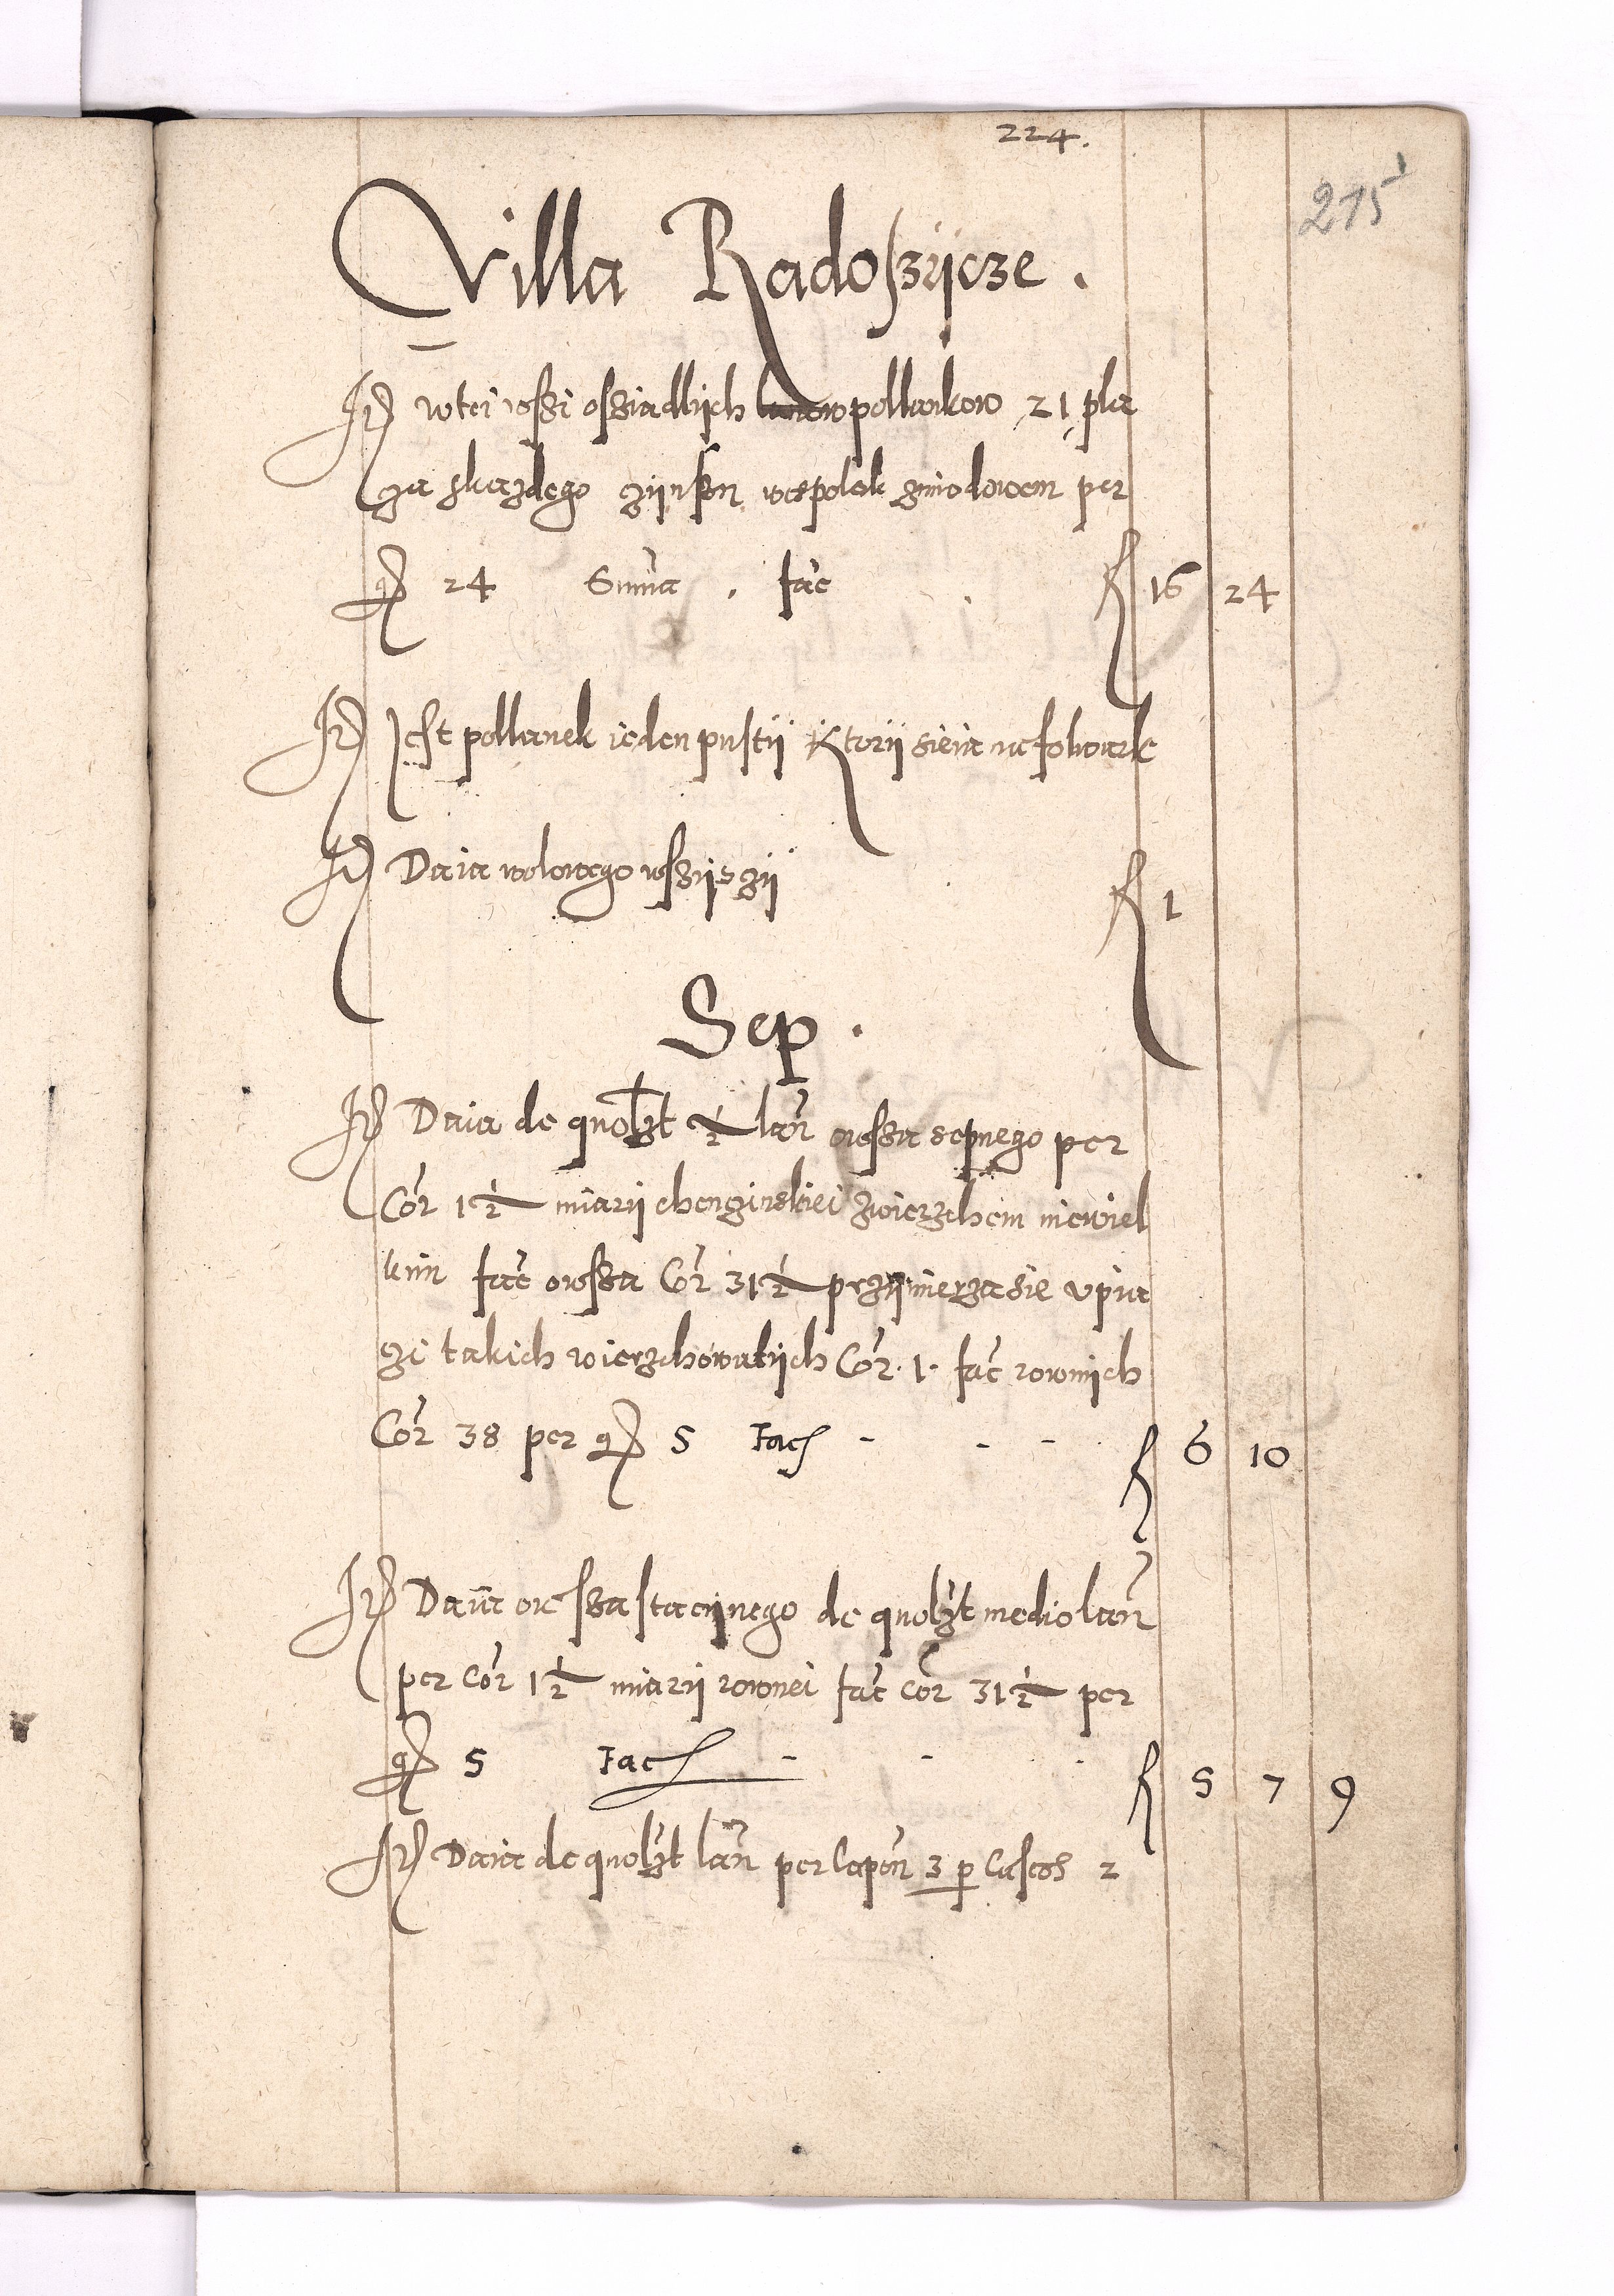 224.
215
Villa Radoszÿcze.
It wtei wsszi osziadlÿch pollankow 21, pla
cza zkazdego czÿnszu wespolek zmiodowem per
gr 24 Summa . fac fl 16 24
It Jest pollanek ieden pustÿ Ktorÿ sieia nefolwark
It Daia wolowego wszÿsczÿ fl 1
Sep.
It Daia de quolzt ½ lan owssa sepnego per
Cor 1½ miarÿ chenczinskiei zwierzchem niewiel
kim fac owssa Cor 31½ przÿmierza sie vpia
czi takich wierzchowatÿch Cor. 1. fac rownich
Cor 38 per gr 5 Fac - - - fl 6 10
It Daia owssa stacÿnego de quolzt medio lan
per Cor 1½ miarÿ rownei fac Cor 31½ per
gr 5 Fac - - - fl 5 7 9
It Daia de quolzt lan per Capon 3 p Caseos 2